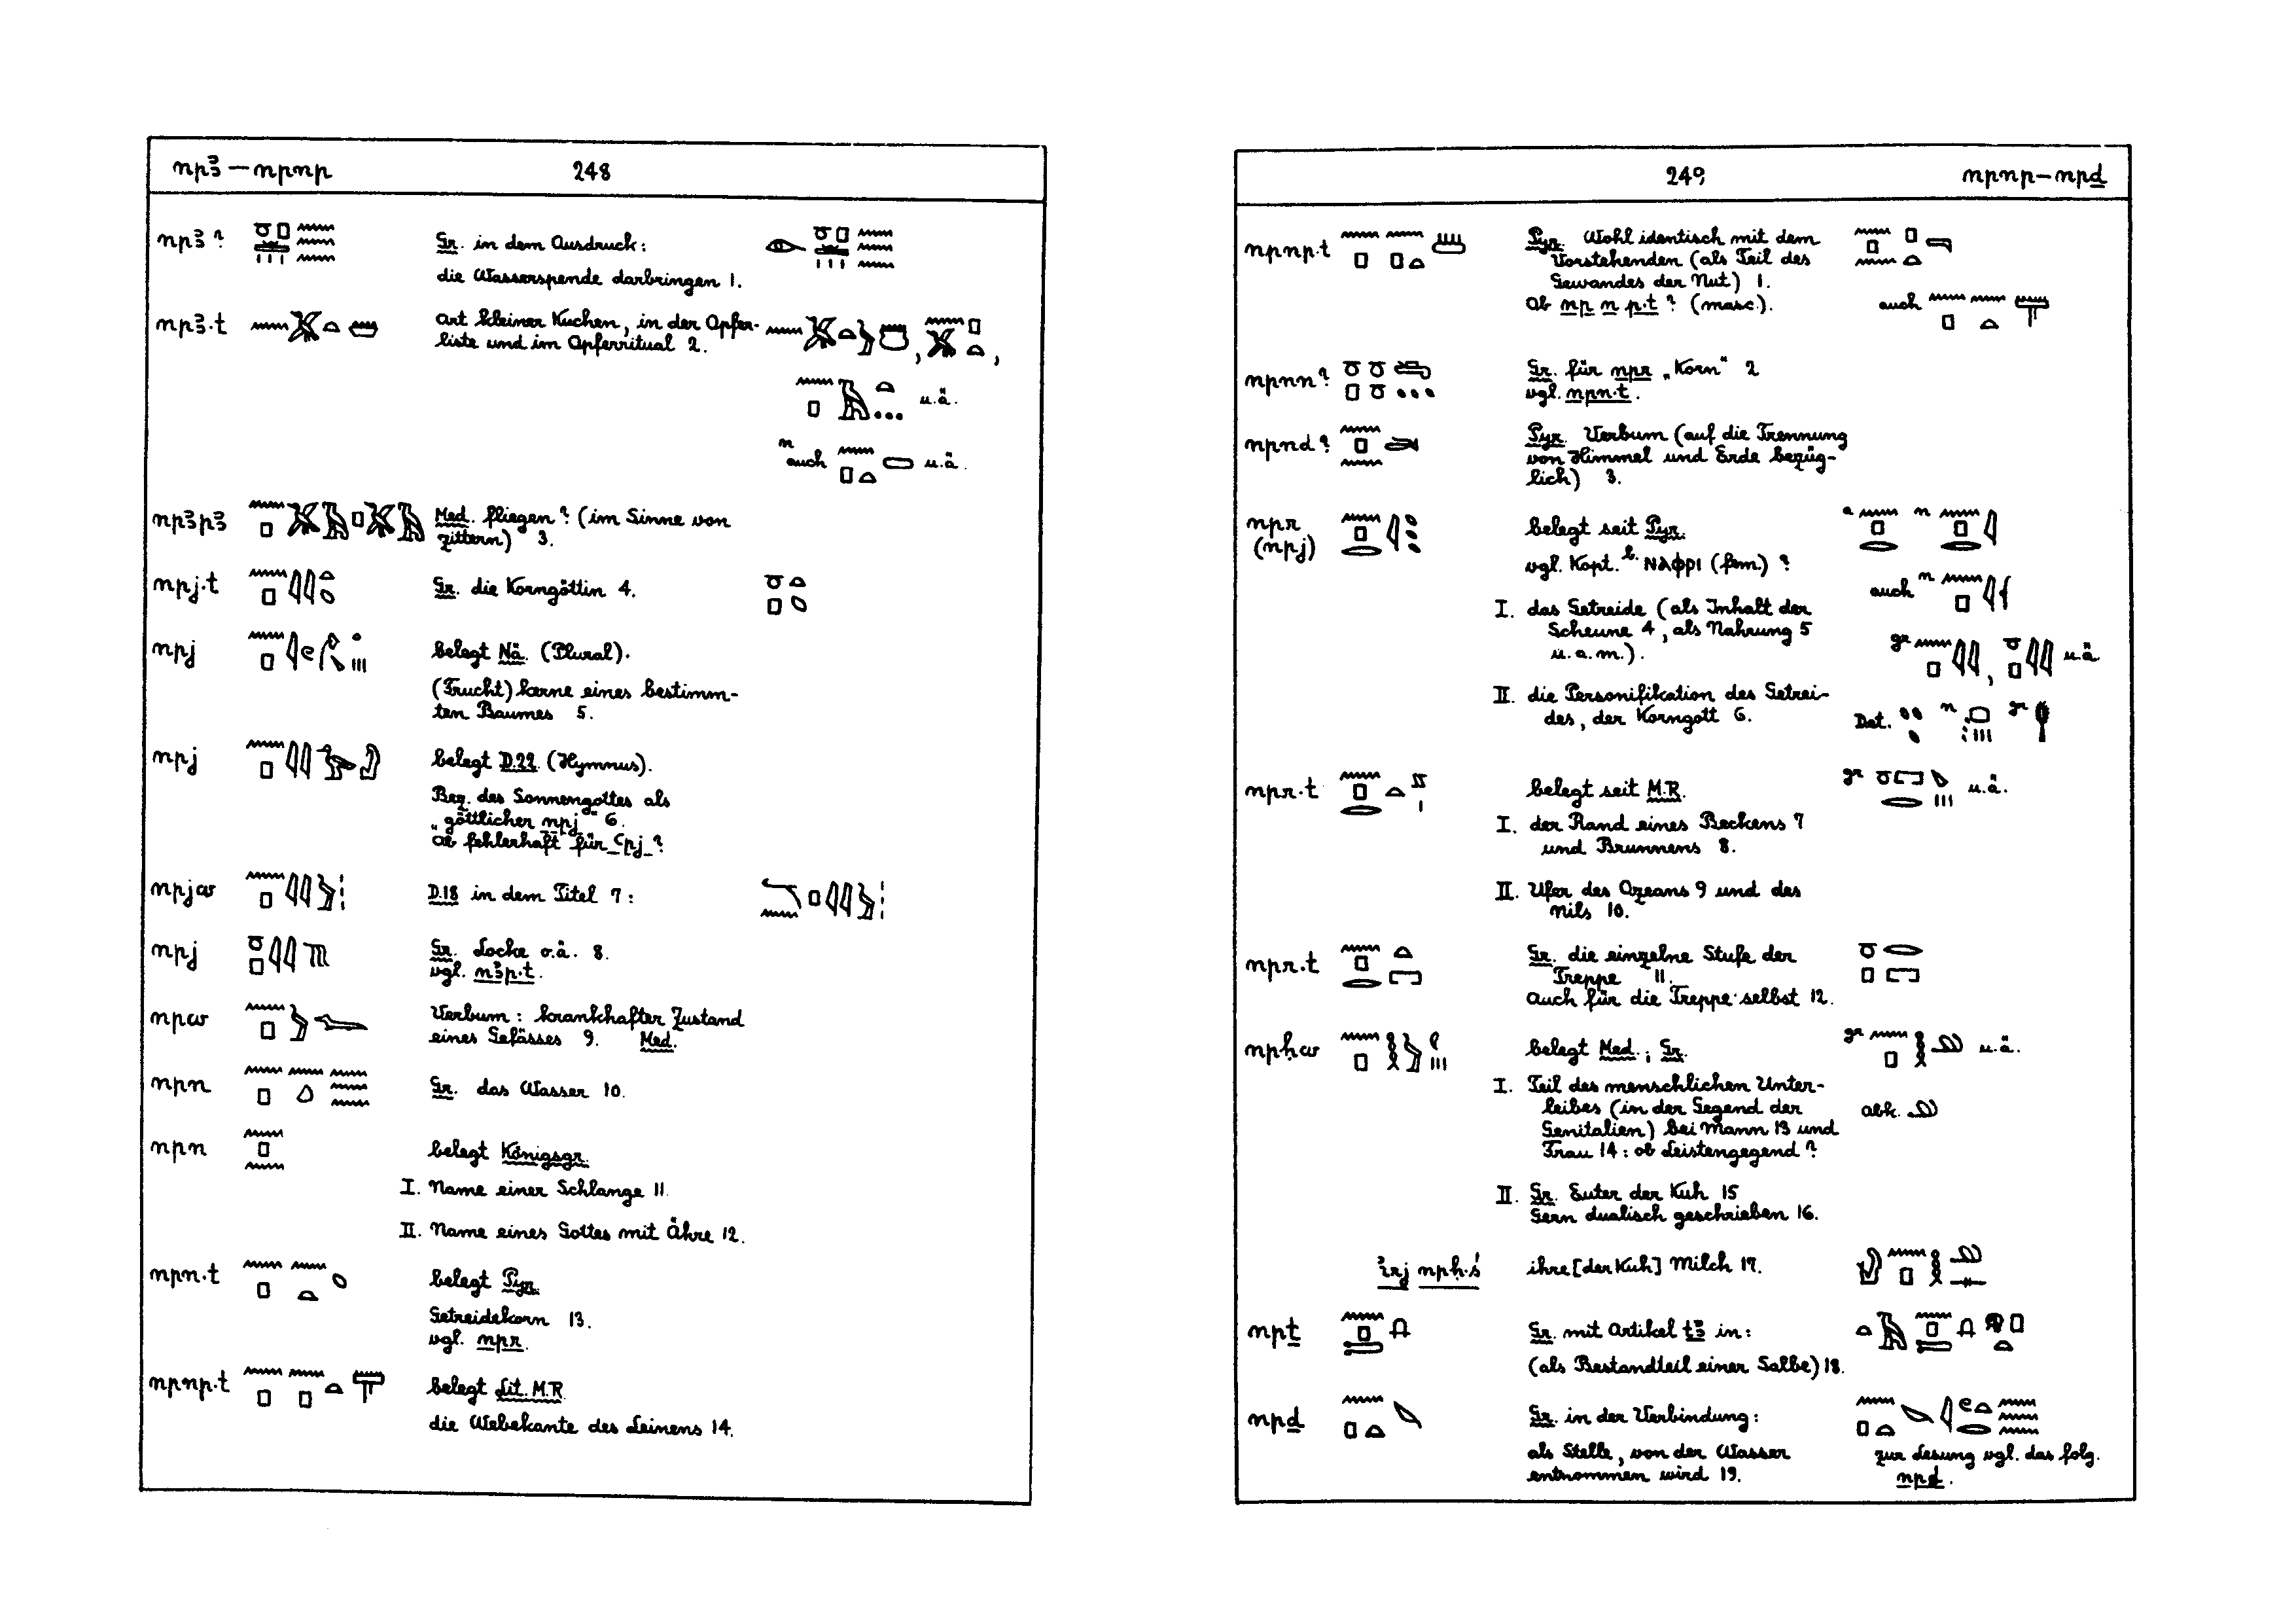 npꜣ — npnp 248
npꜣ ? Gr. in dem Ausdruck:
die Wasserspende darbringen 1.
npꜣ.t Art kleiner Kuchen, in der Opfer-
liste und im Opferritual 2.
u.ä.
n auch u.ä.
npꜣpꜣ Med. fliegen? (im Sinne von
zittern) 3.
npj.t Gr. die Korngöttin 4.
npj belegt Nä. (Plural).
(Frucht)kerne eines bestimm-
ten Baumes 5.
npj belegt D.22 (Hymnus).
Bez. des Sonnengottes als
„göttlicher npj" 6.
Ob fehlerhaft für ꜥpj ?
npjw D.18 in dem Titel 7:
npj Gr. Locke o.ä. 8.
vgl. nꜣp.t.
npw Verbum: krankhafter Zustand
eines Gefässes 9. Med.
npn Gr. das Wasser 10.
npn belegt Königsgr.
I. Name einer Schlange 11.
II. Name eines Gottes mit Ähre 12.
npn.t belegt Pyr.
Getreidekorn 13.
vgl. npr.
npnp.t belegt Lit. M.R.
die Webekante des Leinens 14.
249 npnp — npḏ
npnp.t Pyr. Wohl identisch mit dem
Vorstehenden (als Teil des
Gewandes der Nut) 1.
Ob np n p.t ? (masc.). auch
npnn? Gr. für npr „Korn" 2
vgl. npn.t.
npnd? Pyr. Verbum (auf die Trennung
von Himmel und Erde bezüg-
lich) 3.
npr belegt seit Pyr. a n
(npj)
vgl. Kopt. b. ⲛⲁⲫⲣⲓ (fem.) ?
auch n
I. das Getreide (als Inhalt der
Scheune 4, als Nahrung 5
u.a.m.). gr , u.ä.
II. die Personifikation des Getrei-
des, der Korngott 6. Det. n gr
npr.t belegt seit M.R. gr u.ä.
I. der Rand eines Beckens 7
und Brunnens 8.
II. Ufer des Ozeans 9 und des
Nils 10.
npr.t Gr. die einzelne Stufe der
Treppe 11.
Auch für die Treppe selbst 12.
npḥw belegt Med.; Gr. gr u.ä.
I. Teil des menschlichen Unter-
leibes (in der Gegend der abk.
Genitalien) bei Mann 13 und
Frau 14: ob Leistengegend?
II. Gr. Euter der Kuh 15
Gern dualisch geschrieben 16.
ꞽrj npḥ.ś ihre [der Kuh] Milch 17.
npṯ Gr. mit Artikel tꜣ in:
(als Bestandteil einer Salbe) 18.
npḏ Gr. in der Verbindung:
als Stelle, von der Wasser
entnommen wird 19.
zur Lesung vgl. das folg.
npḏ.